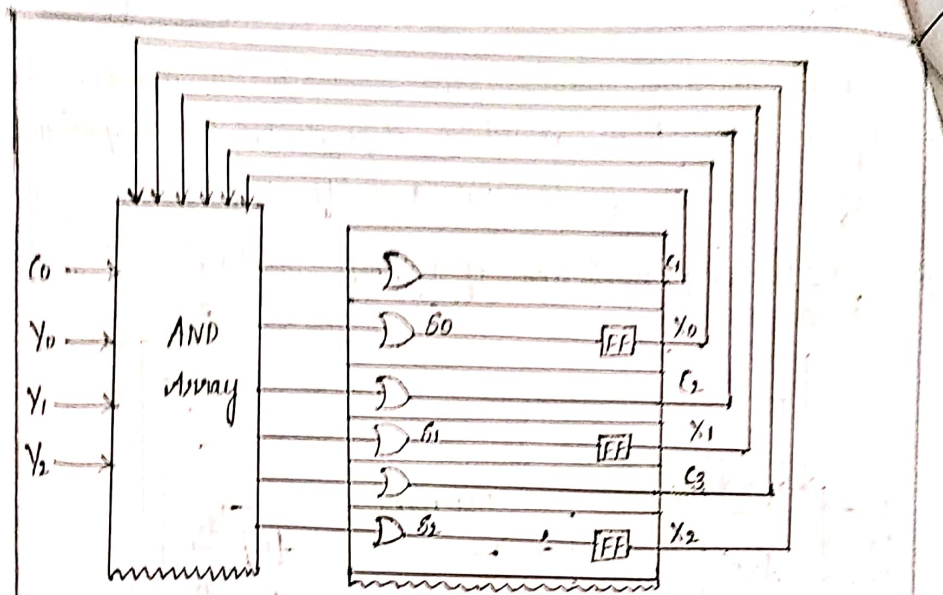 C0
Y0
Y1
Y2
AND
Array
C1
S0
FF
X0
C2
S1
FF
X1
C3
S2
FF
X2